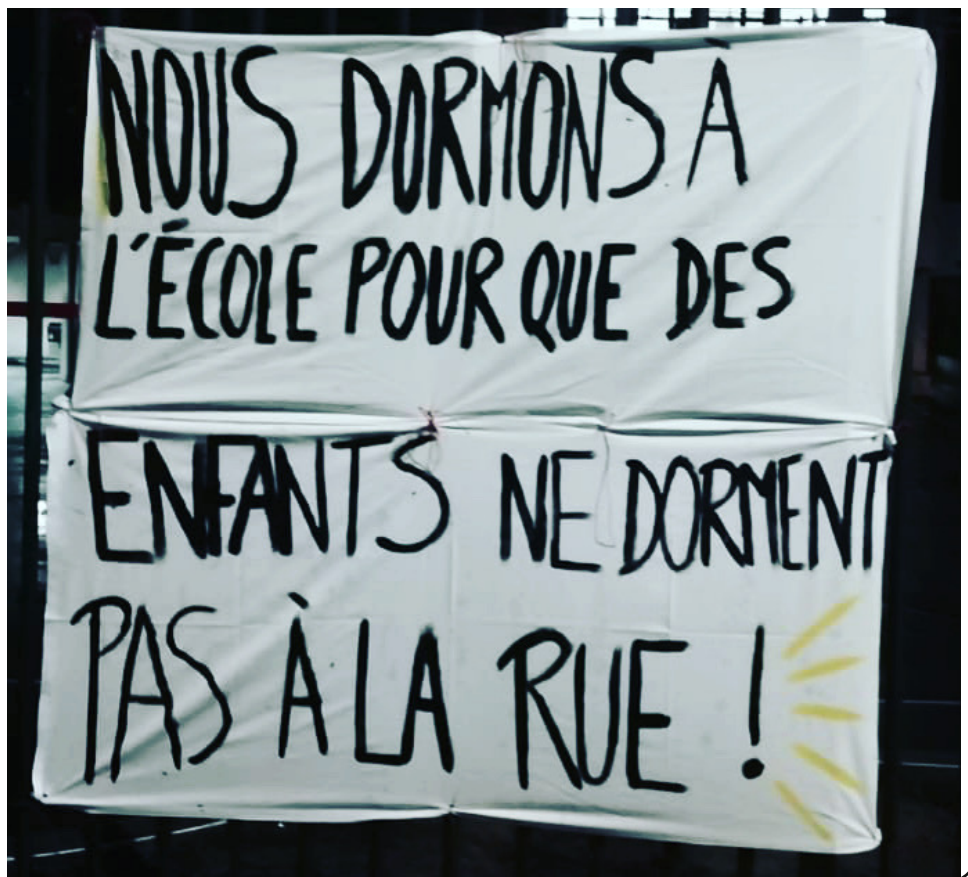 NOUS DORMONS À
L'ÉCOLE POUR QUE DES
ENFANTS NE DORMENT
PAS À LA RUE !